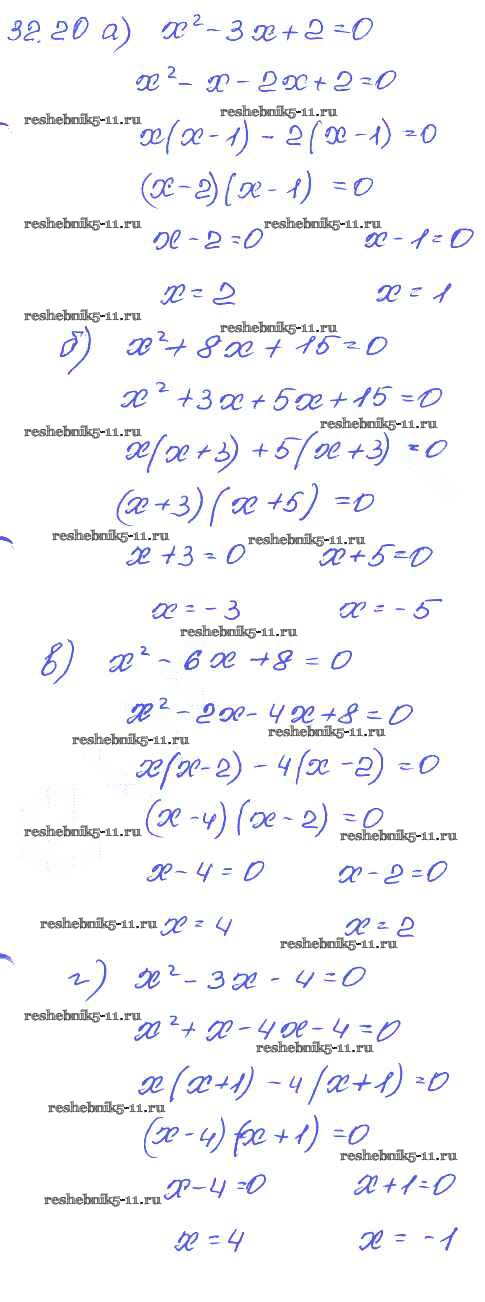 32.20 а) x² - 3x + 2 = 0
x² - x - 2x + 2 = 0
reshebnik5-11.ru reshebnik5-11.ru
x(x - 1) - 2(x - 1) = 0
(x - 2)(x - 1) = 0
reshebnik5-11.ru reshebnik5-11.ru
x - 2 = 0 x - 1 = 0
x = 2 x = 1
reshebnik5-11.ru reshebnik5-11.ru
б) x² + 8x + 15 = 0
x² + 3x + 5x + 15 = 0
reshebnik5-11.ru reshebnik5-11.ru
x(x + 3) + 5(x + 3) = 0
(x + 3)(x + 5) = 0
reshebnik5-11.ru reshebnik5-11.ru
x + 3 = 0 x + 5 = 0
x = -3 x = -5
reshebnik5-11.ru
в) x² - 6x + 8 = 0
x² - 2x - 4x + 8 = 0
reshebnik5-11.ru reshebnik5-11.ru
x(x - 2) - 4(x - 2) = 0
(x - 4)(x - 2) = 0
reshebnik5-11.ru reshebnik5-11.ru
x - 4 = 0 x - 2 = 0
reshebnik5-11.ru x = 4 x = 2
reshebnik5-11.ru
г) x² - 3x - 4 = 0
reshebnik5-11.ru
x² + x - 4x - 4 = 0
reshebnik5-11.ru
x(x + 1) - 4(x + 1) = 0
reshebnik5-11.ru
(x - 4)(x + 1) = 0
reshebnik5-11.ru
reshebnik5-11.ru x - 4 = 0 x + 1 = 0
x = 4 x = -1